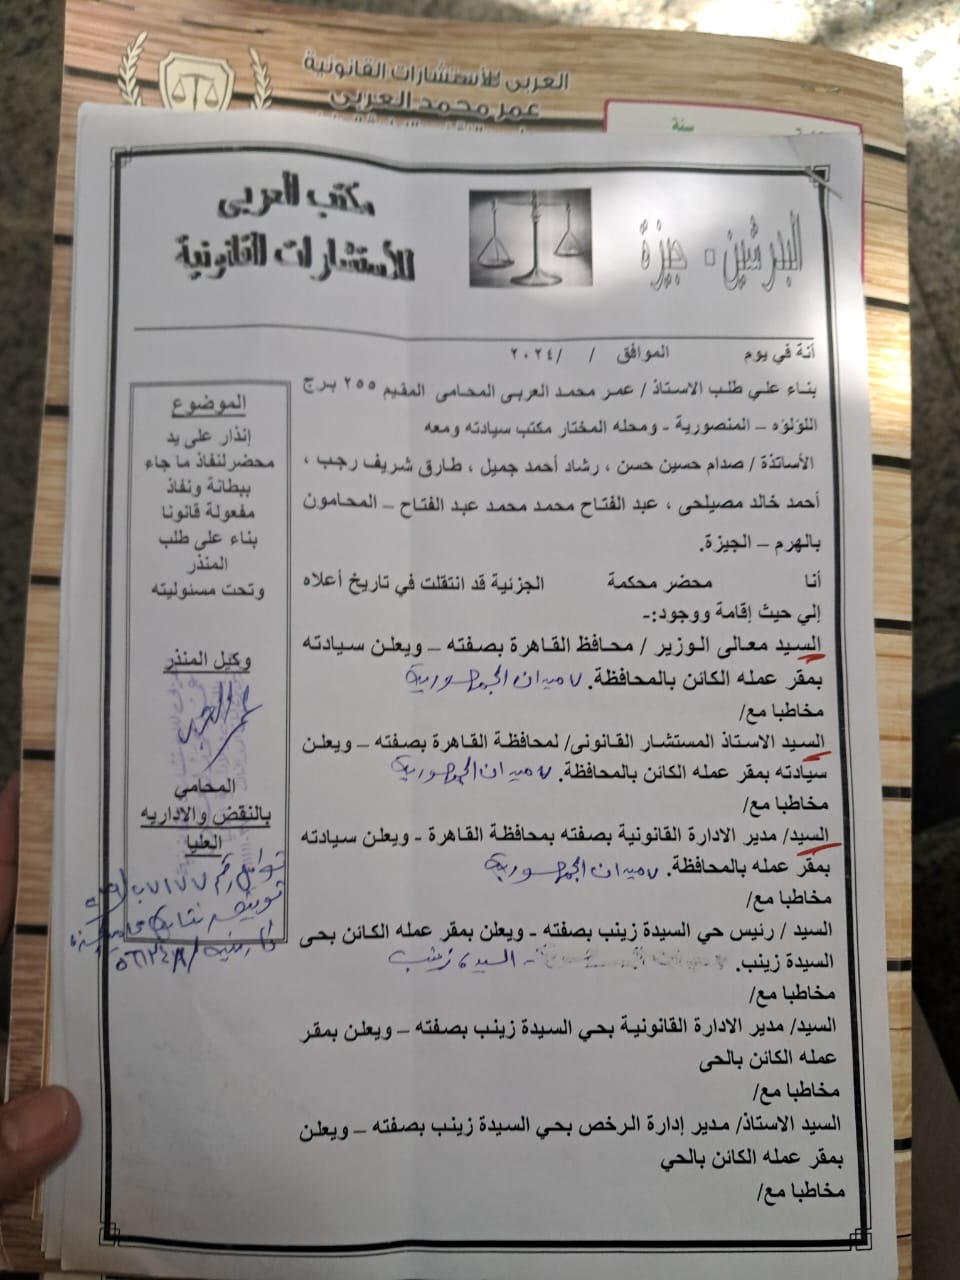 العربى للأستشارات القانونية
عمر محمد العربى
سنة
مكتب العربى
للأستشارات القانونية
البدرشين - جيزة
أنة في يوم الموافق / / ٢٠٢٤
بناء علي طلب الاستاذ / عمر محمد العربى المحامى المقيم ٢٥٥ برج
اللؤلؤه – المنصورية - ومحله المختار مكتب سيادته ومعه
الأساتذة / صدام حسين حسن ، رشاد أحمد جميل ، طارق شريف رجب ،
أحمد خالد مصيلحى ، عبد الفتاح محمد محمد عبد الفتاح – المحامون
بالهرم – الجيزة.
أنا محضر محكمة الجزئية قد انتقلت في تاريخ أعلاه
إلي حيث إقامة ووجود:-
السيد معالى الوزير / محافظ القاهرة بصفته – ويعلن سيادته
بمقر عمله الكائن بالمحافظة. ٧ ميدان الجمهورية
مخاطبا مع/
السيد الاستاذ المستشار القانونى/ لمحافظة القاهرة بصفته – ويعلن
سيادته بمقر عمله الكائن بالمحافظة. ٧ ميدان الجمهورية
مخاطبا مع/
السيد/ مدير الادارة القانونية بصفته بمحافظة القاهرة - ويعلن سيادته
بمقر عمله بالمحافظة. ٧ ميدان الجمهورية
مخاطبا مع/
السيد / رئيس حي السيدة زينب بصفته - ويعلن بمقر عمله الكائن بحى
السيدة زينب. - السيدة زينب
مخاطبا مع/
السيد/ مدير الادارة القانونية بحي السيدة زينب بصفته – ويعلن بمقر
عمله الكائن بالحى
مخاطبا مع/
السيد الاستاذ/ مدير إدارة الرخص بحي السيدة زينب بصفته – ويعلن
بمقر عمله الكائن بالحي
مخاطبا مع/
الموضوع
إنذار على يد
محضر لنفاذ ما جاء
ببطانة ونفاذ
مفعولة قانونا
بناء على طلب
المنذر
وتحت مسئوليته
وكيل المنذر
المحامي
بالنقض والاداريه
العليا